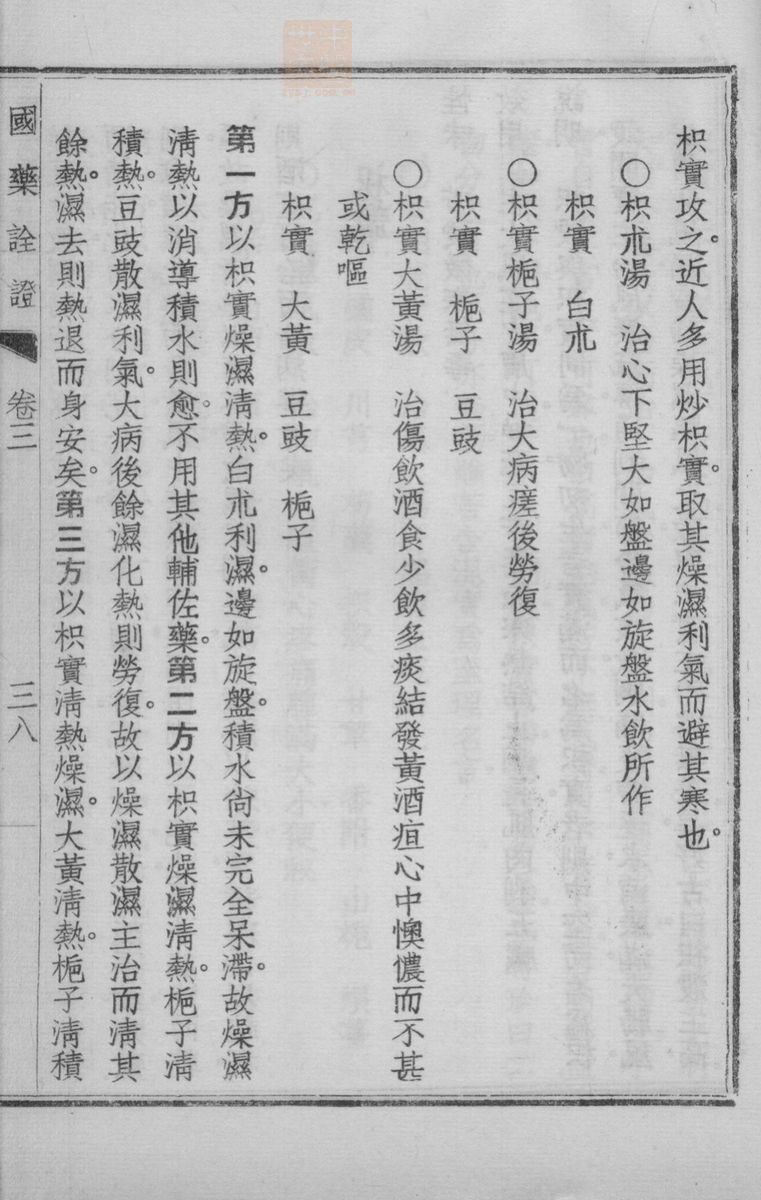 枳實攻之。近人多用炒枳實。取其燥濕利氣而避其寒也。
〇枳朮湯　治心下堅大如盤邊如旋盤水飲所作
枳實　白朮
〇枳實梔子湯　治大病瘥後勞復
枳實　梔子　豆豉
〇枳實大黃湯　治傷飲酒食少飲多痰結發黃酒疸心中懊憹而不甚
或乾嘔
枳實　大黃　豆豉　梔子
第一方以枳實燥濕清熱。白朮利濕。邊如旋盤。積水尙未完全呆滯。故燥濕
淸熱以消導積水則愈。不用其他輔佐藥。第二方以枳實燥濕淸熱。梔子淸
積熱。豆豉散濕利氣。大病後餘濕化熱則勞復。故以燥濕散濕主治而淸其
餘熱。濕去則熱退而身安矣。第三方以枳實淸熱燥濕。大黃淸熱。梔子淸積
國藥詮證　卷三　三八